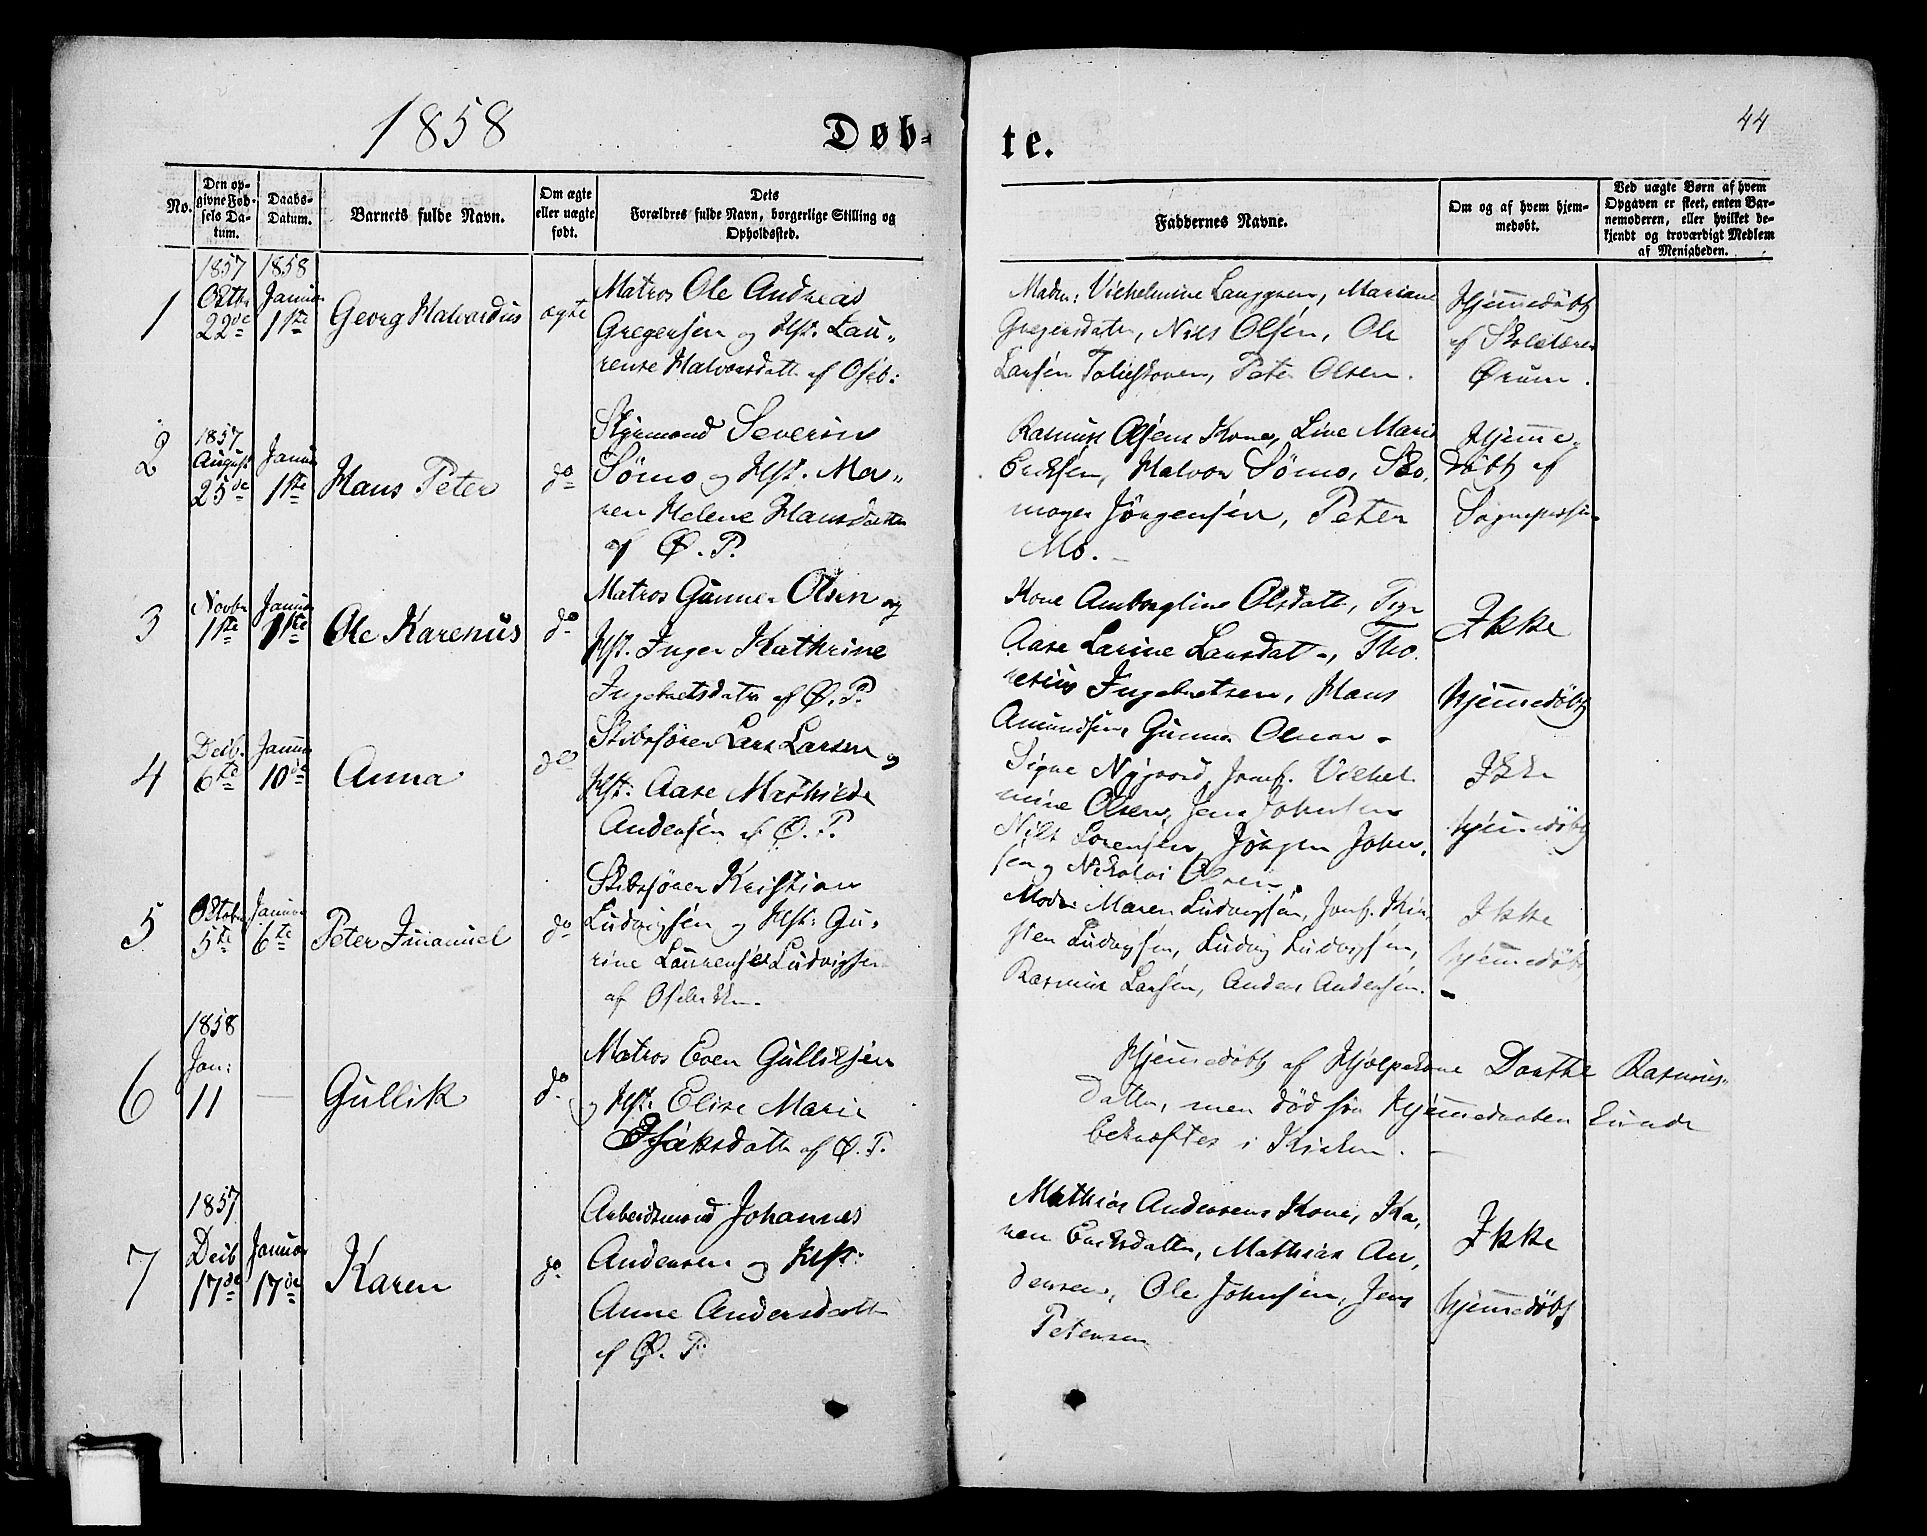 1858
Døb-
te.
44
No.
Den op-
givne Fød-
sels Da-
tum.
Daabs-
Datum.
Barnets fulde Navn.
Om ægte
eller uægte
født.
Dets
Forældres fulde Navn, borgerlige Stilling og
Opholdssted.
Faddernes Navne.
Om og af hvem hjem-
medøbt.
Ved uægte Børn af hvem
Opgaven er skeet, enten Bar-
nemoderen, eller hvilket be-
kjendt og troværdigt Medlem
af Menigheden.
1
1857
Octbr
22de
1858
Januar
1ste
Georg Halvardus
ægte
Matros Ole Andreas
Gregersen og Hst. Lau-
rense Halvorsdatt. af Oseb:
Madm: Vilhelmine Langgren, Mariane
Gregersdatter, Nils Olsen, Ole
Larsen, Peter Olsen.
Hjemmedøbt
af Skolelærer
Ørum.
2
1857
August
25de
Januar
1ste
Hans Peter
do
Styrmand Severin
Sömo og Hst. Ma-
ren Helene Hansdatter
af Ø. P.
Rasmus Kone, Line Marie
Eriksen, Halvor Sömo, Sko-
mager Jörgensen, Peter
Mo.
Hjemme-
døbt af
Sognepresten
3
Novbr
1ste
Januar
1ste
Ole Karenus
do
Matros Gunner Olsen og
Hst. Inger Kathrine
Ingebretsdatr af Ø. P.
Kone Amborgline Olsdatt,
Aase Larine Larsdatr, Tho-
Ingebretsen, Hans
Amundsen, Gunner Olsen
Ikke
hjemmedøbt
4
Decb.
6te
Januar
10de
Anna
do
Skibsfører Lars Larsen og
Hst: Aase Mathilde
Andersen af Ø. P.
Signe Nygaard, Jomf. Vilhel-
mine Olsen, Jens Johnsen
Nils Sorensen, Jörgen John-
sen og Nikolai Olsen.
Ikke
hjemmedøbt
5
Oktober
5te
Januar
6te
Peter Imanuel
do
Skibsfører Kristian
Ludvigsen og Hst: Gu-
rine Laurense Ludvigsen
af Osebakken.
Madm: Maren Ludvigsen, Jomf. Kir-
sten Ludvigsen, Ludvig Ludvigsen,
Rasmus Larsen, Anders Andersen.
Ikke
hjemmedøbt
6
1858
Jan:
11
Gullik
do
Matros Even Gulliksen
og Hst: Elise Marie
Isaksdatter af Ø. P.
Hjemmedøbt af Hjelpekone Dorthe Rasmus-
datter, men død før Hjemmedaaben kunde
bekræftes i Kirken.
7
1857
Decb
17de
Januar
17de
Karen
do
Arbeidsmand Johannes
Andersen og Hst:
Anne Andersdatter
af Ø. P.
Mathias Andersens Kone, Ka-
ren Eriksdatter, Mathias An-
dersen, Ole Johnsen, Jens
Petersen
Ikke
hjemmedøbt